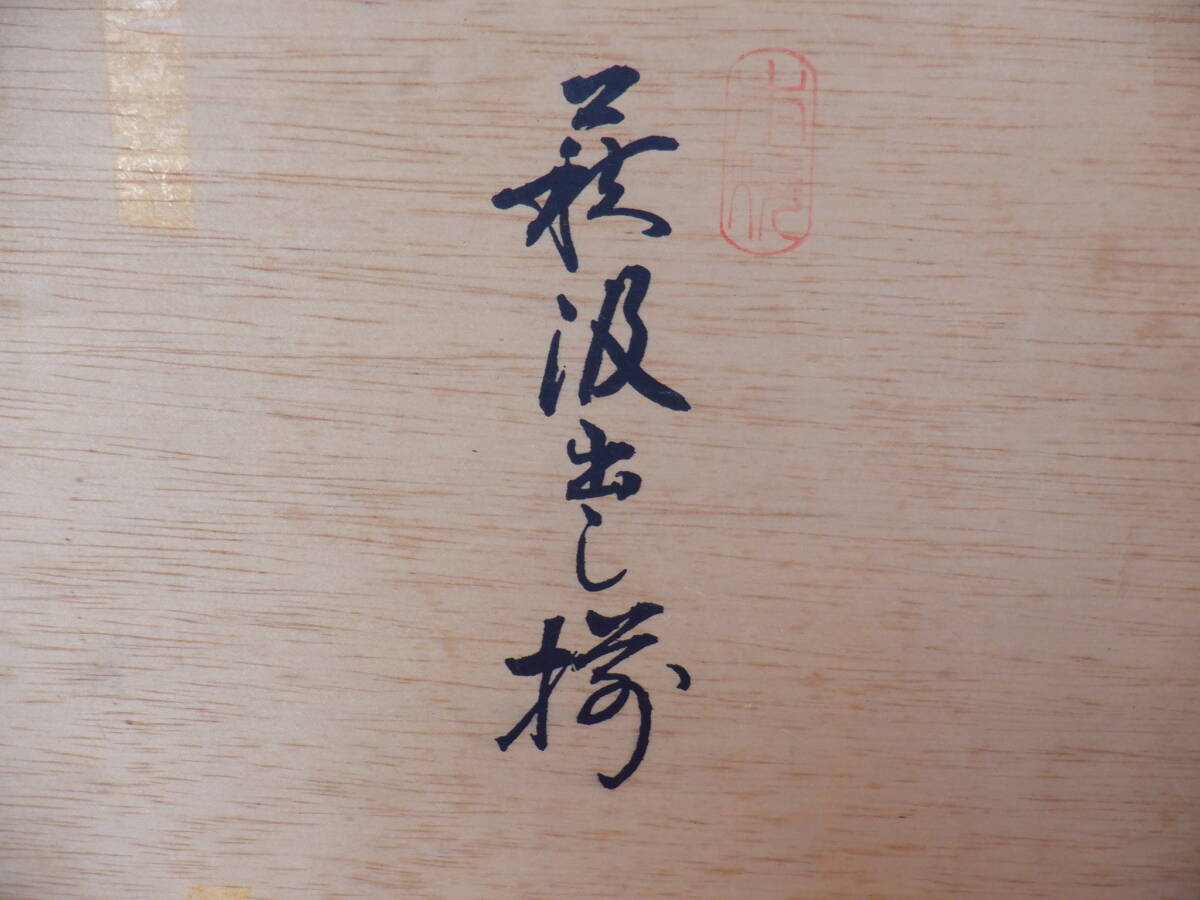 萩汲出し揃